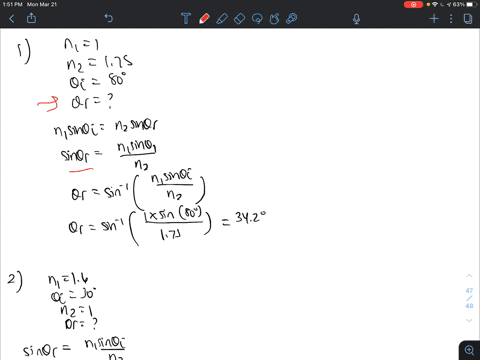 1:51 PM Mon Mar 21
63%
1)
n₁ = 1
n₂ = 1.75
θi = 80°
→ θr = ?
n₁sinθi = n₂sinθr
sinθr = n₁sinθi / n₂
θr = sin⁻¹ ( n₁sinθi / n₂ )
θr = sin⁻¹ ( 1 x sin (80°) / 1.75 ) = 34.2°
2)
n₁ = 1.6
θi = 30°
n₂ = 1
θr = ?
sinθr = n₁sinθi / n₂
47
/
48